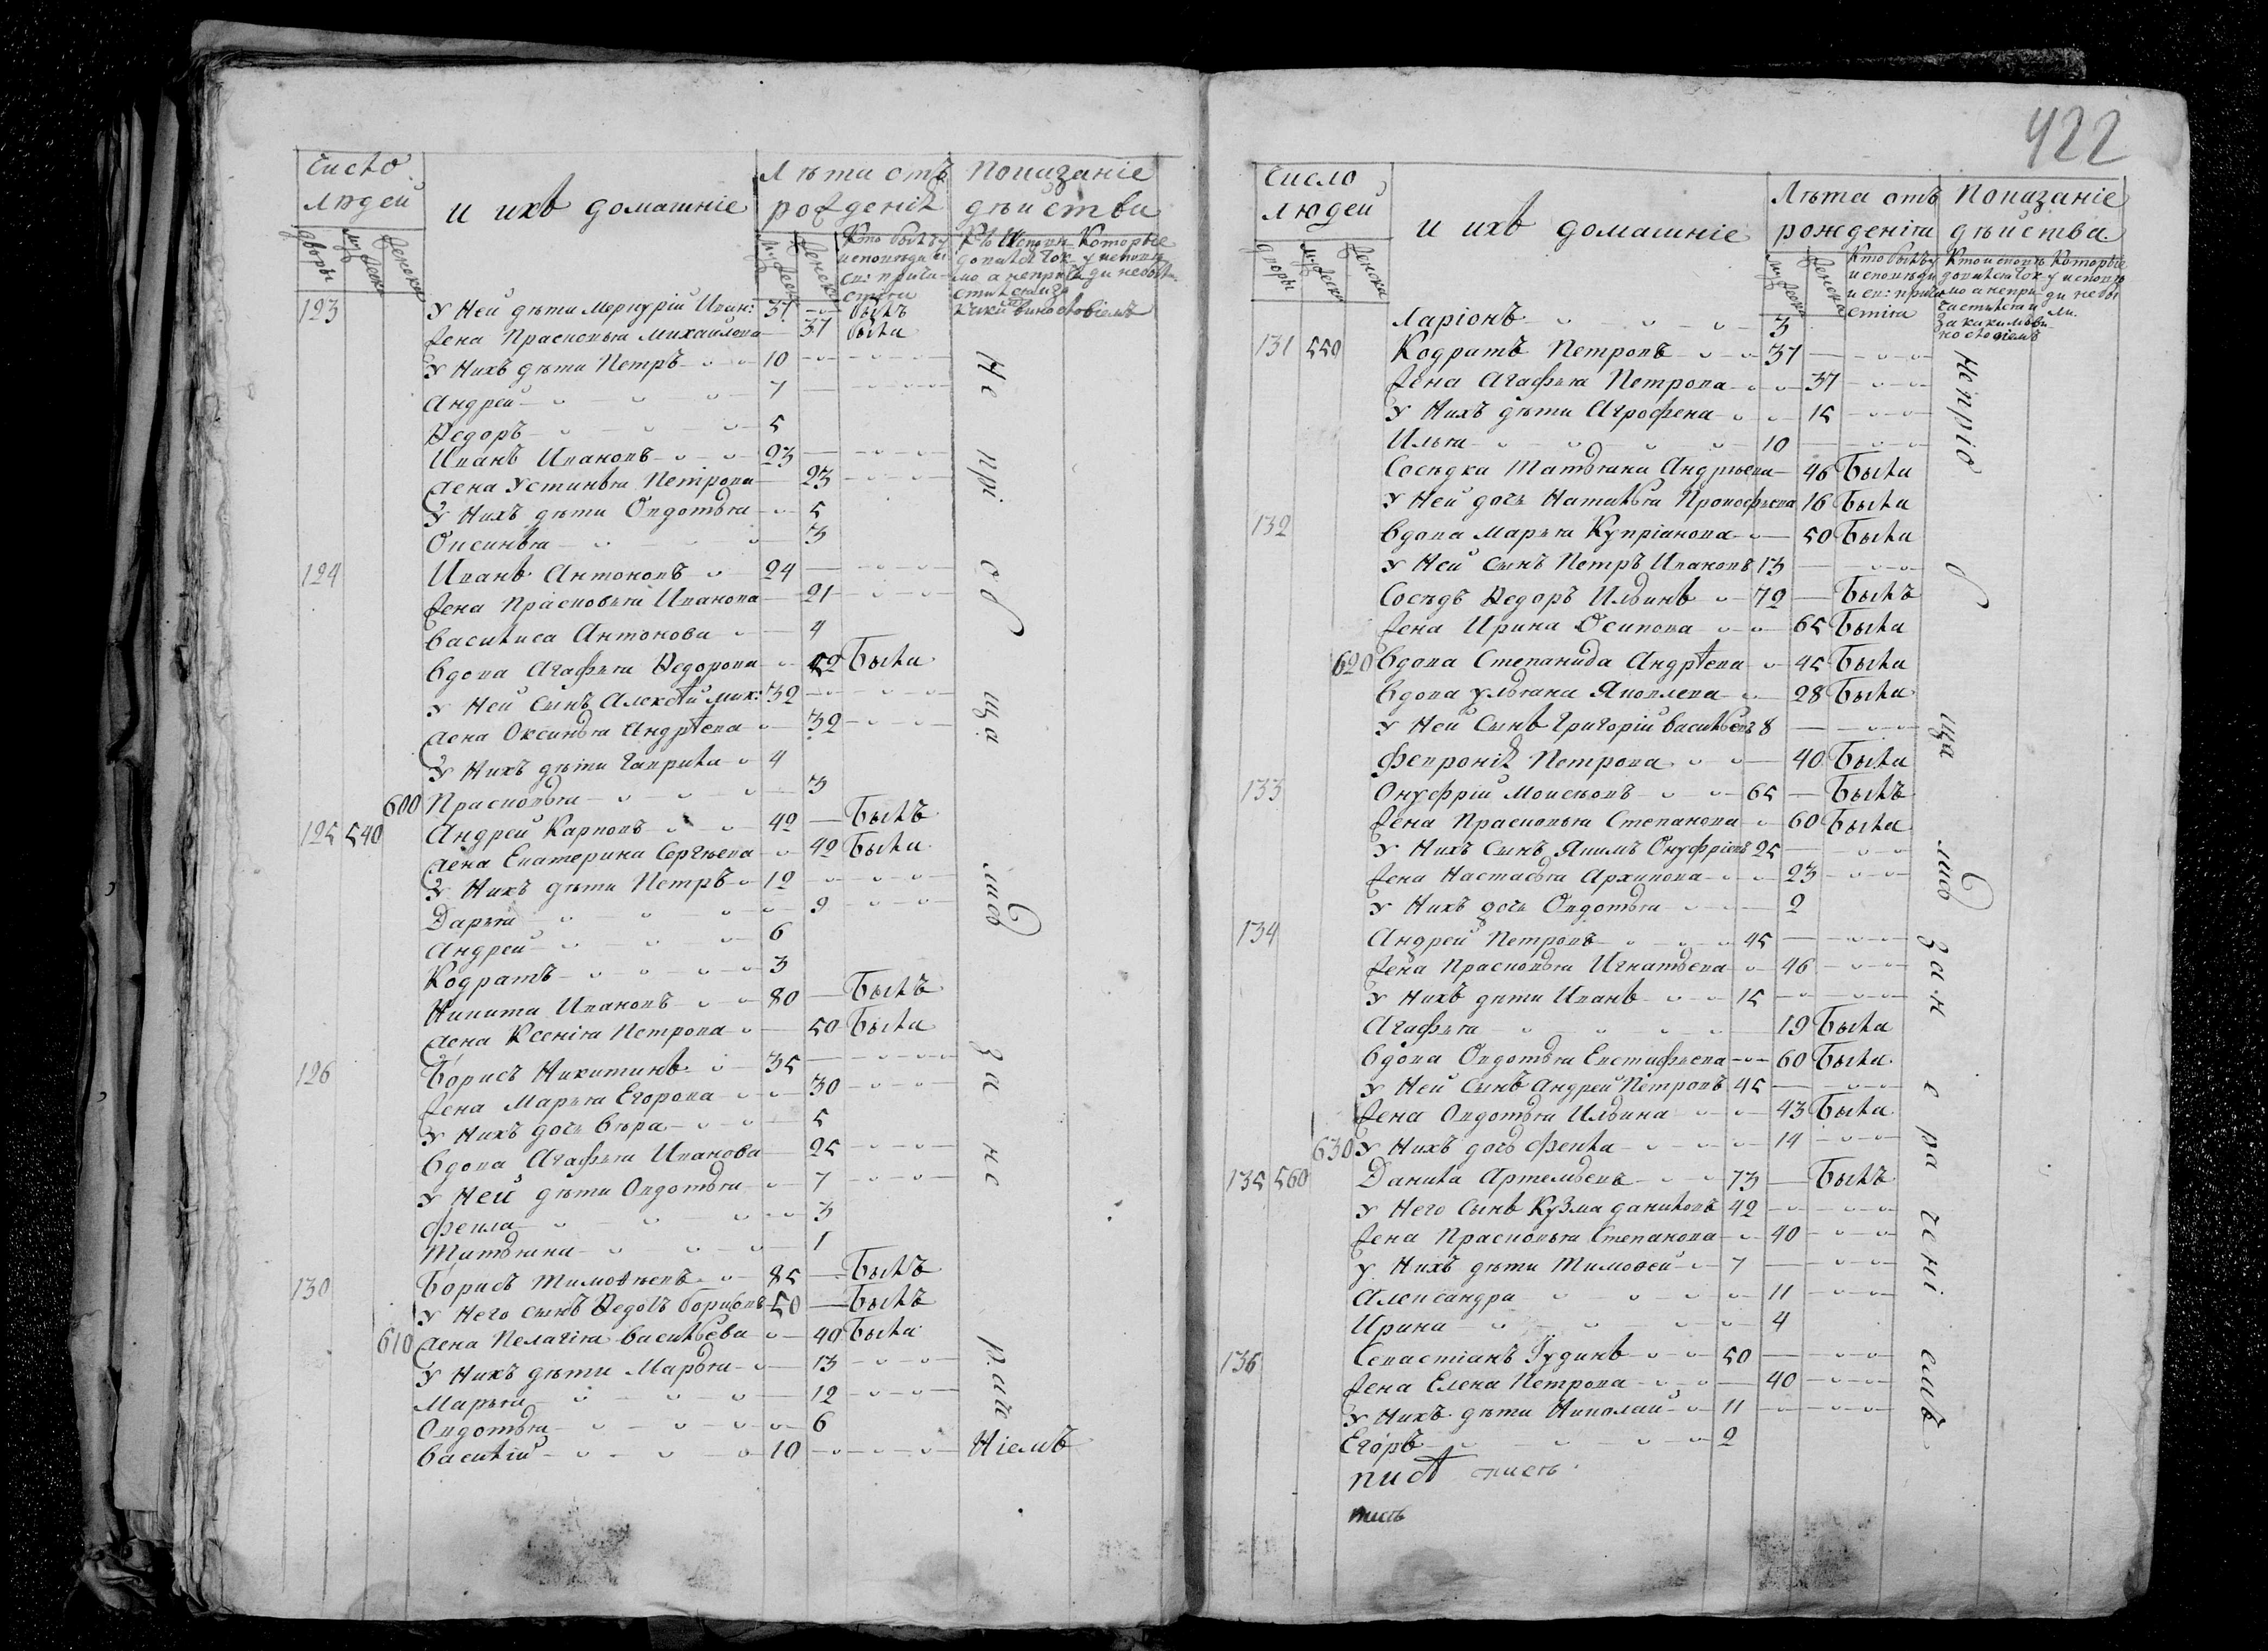 422
Число людей
дворы
мужеска
женска
и ихъ домашніе
Лѣта отъ рожденія
Показаніе дѣйства
123 У Ней дѣти Меркурій Иван: 31 былъ
жена Прасковья Михаилова 37 была
У Нихъ дѣти Петръ 10
Андрей 7
Ѳедоръ 5
Иванъ Ивановъ 23
жена Устинья Петрова 23
У Нихъ дѣти Овдотья 5
Оксинья 3
124 Иванъ Антоновъ 24
жена Прасковья Иванова 21
Василиса Антонова 4
вдова Агафья Ѳедорова 52 Была
У Ней Сынъ Алексѣй мих: 32
жена Оксинья Андрѣева 32
У Нихъ дѣти Гаврила 4
600 Прасковья 3
125 540 Андрей Карповъ 42 Былъ
жена Екатерина Сергѣева 42 Была
У Нихъ дѣти Петръ 12
Дарья 9
Андрей 6
Кодратъ 3
Никита Ивановъ 80 Былъ
жена Ксенія Петрова 50 Была
126 Борисъ Никитинъ 35
жена Марья Егорова 30
У Нихъ дочь Вѣра 5
вдова Агафья Иванова 25
У Ней дѣти Овдотья 7
Фекла 3
Татьяна 1
130 Борисъ Тимоѳѣевъ 85 Былъ
У Него сынъ Ѳедотъ Борисовъ 50 Былъ
610 жена Пелагія Васильева 40 Была
У Нихъ дѣти Марья 13
Марья 12
Овдотья 6
Василій 10
Не пріобщались за нераченіемъ
Число людей
дворы
мужеска
женска
и ихъ домашніе
Лѣта отъ рожденія
Показаніе дѣйства
Ларіонъ 3
131 550 Кодратъ Петровъ 37
жена Агафья Петрова 37
У Нихъ дѣти Агрофена 15
Илья 10
Сосѣдка Татьяна Андрѣева 46 Была
У Ней дочь Наталья Прокофьева 16 Была
132 вдова Марья Купріанова 50 Была
У Ней Сынъ Петръ Ивановъ 13
Сосѣдъ Ѳедоръ Ильинъ 72 Былъ
жена Ирина Осипова 65 Была
620 вдова Степанида Андрѣева 45 Была
вдова Ульяна Яковлева 28 Была
У Ней Сынъ Григорій Васильевъ 8
Февронія Петрова 40 Была
133 Онуфрій Моисѣевъ 65 Былъ
жена Прасковья Степанова 60 Была
У Нихъ Сынъ Якимъ Онуфріевъ 25
жена Настасья Архипова 23
У Нихъ дочь Овдотья 2
134 Андрей Петровъ 45
жена Прасковья Игнатьева 46
У Нихъ дѣти Иванъ 15
Агафья 19 Была
вдова Овдотья Евстафьева 60 Была
У Ней Сынъ Андрей Петровъ 45
жена Овдотья Ильина 43 Была
630 У Нихъ дочь Фекла 14
135 560 Данила Артемьевъ 73 Былъ
У Него Сынъ Кузма Даниловъ 42
жена Прасковья Степанова 40
У Нихъ дѣти Тимоѳей 7
Александра 11
Ирина 4
136 Севастіанъ Іудинъ 50
жена Елена Петрова 40
У Нихъ дѣти Николай 11
Егоръ 2
Непріобщались за нераченіемъ